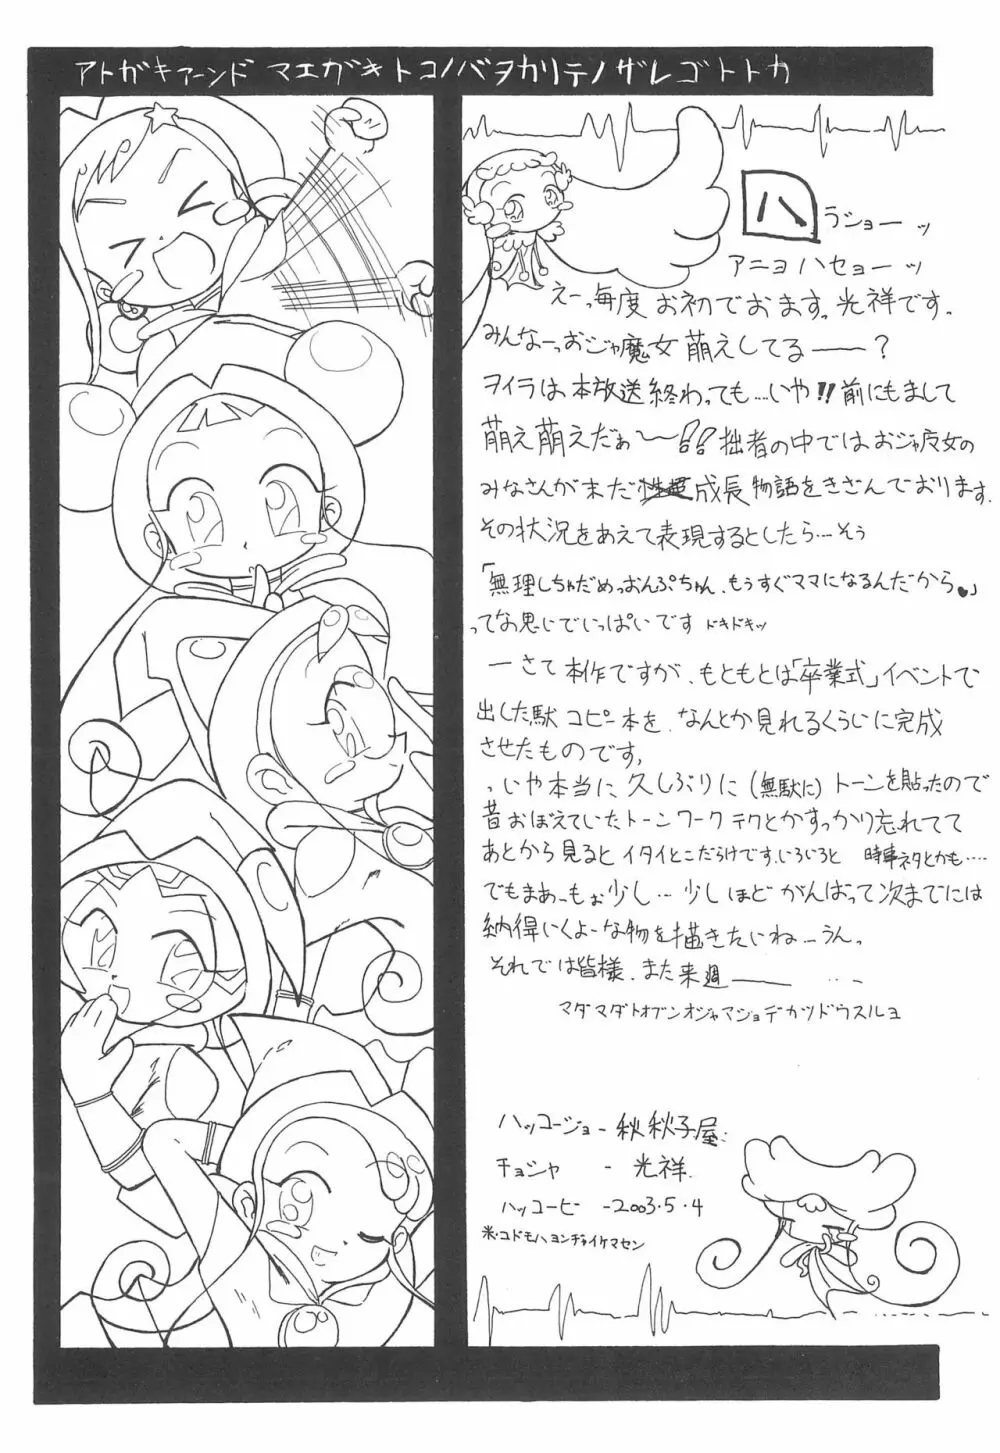 アトガキアーンド マエガキトコノバヲカリテノザレゴトトカ
ハラショーッ
アニョハセョーッ
えーっ毎度お初でおます。光祥です。
みんなーっおジャ魔女萌えしてるー――?
ヲイラは本放送終わっても‥‥いや!!前にもまして
萌え萌えだぁ〜〜!!拙者の中ではおジャ魔女の
みなさんがまだ成長物語をきざんでおります。
その状況をあえて表現するとしたら‥‥そう
「無理しちゃだめっおんぷちゃん、もうすぐママになるんだから♥」
ってな思いでいっぱいです ドキドキッ
―さて本作ですが、もともとは「卒業式」イベントで
出した駄コピー本を、なんとか見れるくらいに完成
させたものです。
、いや本当に久しぶりに(無駄に)トーンを貼ったので
昔おぼえていたトーンワークテクとかすっかり忘れてて
あとから見るとイタイとこだらけです。いろいろと 時事ネタとかも‥‥
でもまあーもぉ少し‥‥少しほどがんばって次までには
納得いくよーな物を描きたいね‥‥うん。
それでは皆様、また来週―――‥‥
マダマダトオブンオジャマジョデカツドウスルヨ
ハッコージョ-秋秋子屋
チョシャ - 光祥.
ハッコービ -2003・5・4
米・コドモハヨンヂャイケマセン